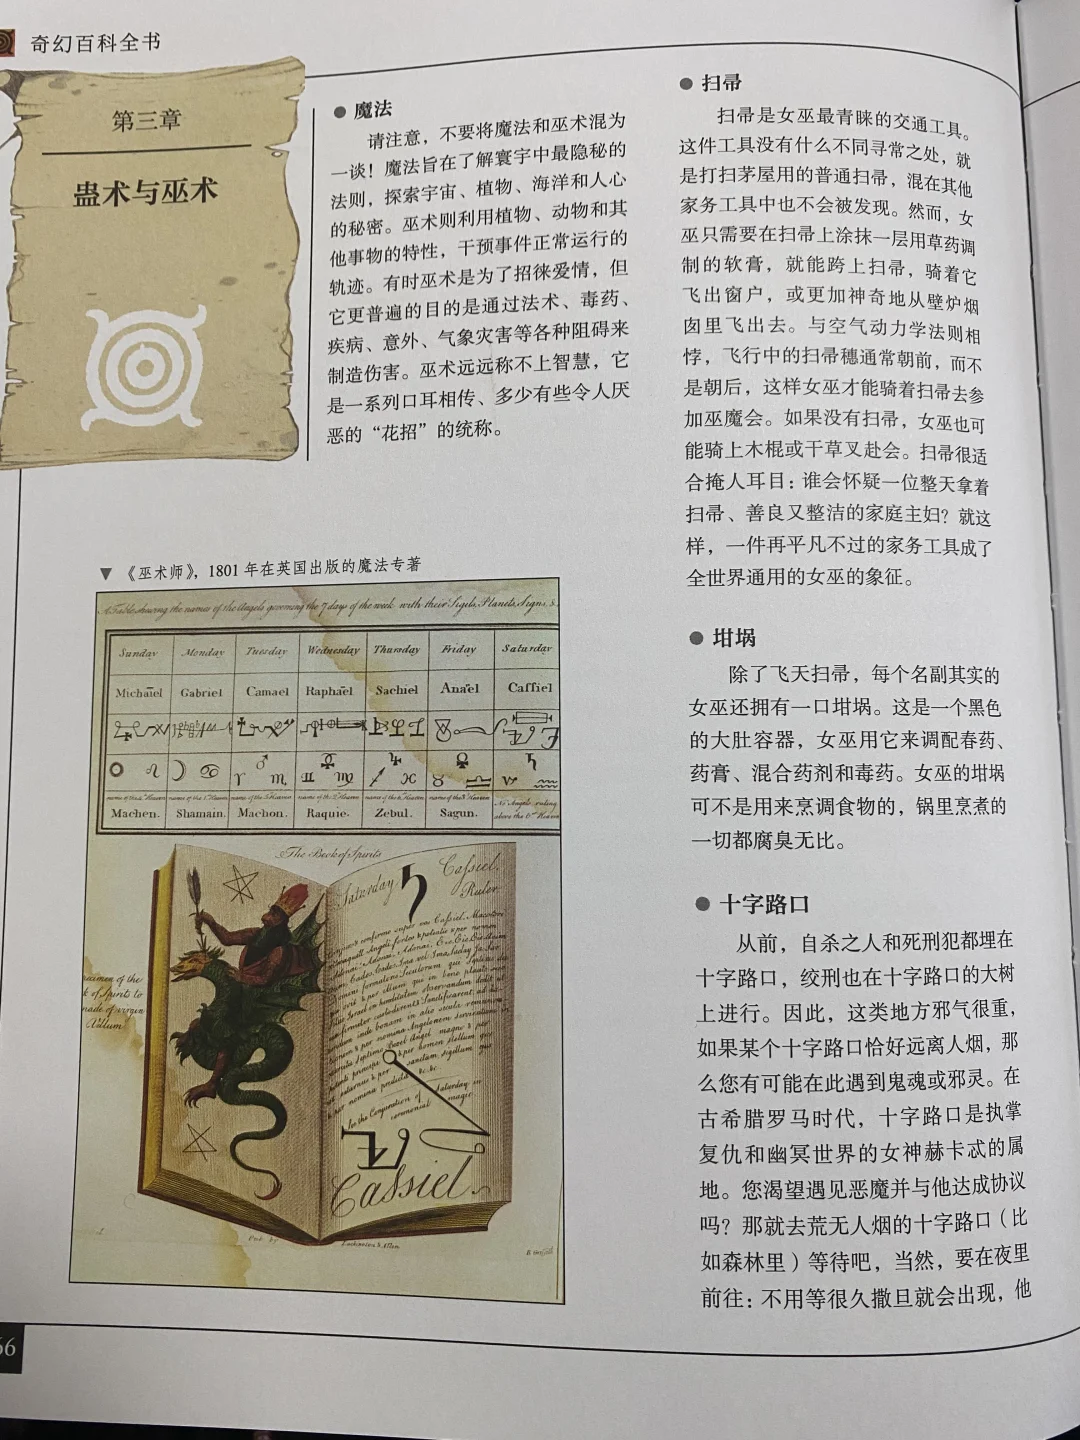 奇幻百科全书
第三章
蛊术与巫术
● 魔法
请注意，不要将魔法和巫术混为
一谈！魔法旨在了解寰宇中最隐秘的
法则，探索宇宙、植物、海洋和人心
的秘密。巫术则利用植物、动物和其
他事物的特性，干预事件正常运行的
轨迹。有时巫术是为了招徕爱情，但
它更普遍的目的是通过法术、毒药、
疾病、意外、气象灾害等各种阻碍来
制造伤害。巫术远远称不上智慧，它
是一系列口耳相传、多少有些令人厌
恶的“花招”的统称。
▼ 《巫术师》，1801 年在英国出版的魔法专著
A Table shewing the names of the Angels governing the 7 days of the week with their Sigils, Planets, Signs, &
Sunday Monday Tuesday Wednesday Thursday Friday Saturday
Michaïel Gabriel Camael Raphaël Sachiel Anaël Caffiel
name of the 4th Heaven name of the 1st Heaven name of the 5th Heaven name of the 2d Heaven name of the 6th Heaven name of the 3d Heaven No Angels ruling
above the 6th Heaven
Machen. Shamain. Machon. Raquie. Zebul. Sagun.
The Book of Spirits
Saturday Cassiel
Ruler
k of Spirits to
made of virgin
Vellum
for the Conjuration of Saturday in
ceremonial magic.
Cassiel
Pub. by Lackington & Allen
● 扫帚
扫帚是女巫最青睐的交通工具。
这件工具没有什么不同寻常之处，就
是打扫茅屋用的普通扫帚，混在其他
家务工具中也不会被发现。然而，女
巫只需要在扫帚上涂抹一层用草药调
制的软膏，就能跨上扫帚，骑着它
飞出窗户，或更加神奇地从壁炉烟
囱里飞出去。与空气动力学法则相
悖，飞行中的扫帚穗通常朝前，而不
是朝后，这样女巫才能骑着扫帚去参
加巫魔会。如果没有扫帚，女巫也可
能骑上木棍或干草叉赴会。扫帚很适
合掩人耳目：谁会怀疑一位整天拿着
扫帚、善良又整洁的家庭主妇？就这
样，一件再平凡不过的家务工具成了
全世界通用的女巫的象征。
● 坩埚
除了飞天扫帚，每个名副其实的
女巫还拥有一口坩埚。这是一个黑色
的大肚容器，女巫用它来调配春药、
药膏、混合药剂和毒药。女巫的坩埚
可不是用来烹调食物的，锅里烹煮的
一切都腐臭无比。
● 十字路口
从前，自杀之人和死刑犯都埋在
十字路口，绞刑也在十字路口的大树
上进行。因此，这类地方邪气很重，
如果某个十字路口恰好远离人烟，那
么您有可能在此遇到鬼魂或邪灵。在
古希腊罗马时代，十字路口是执掌
复仇和幽冥世界的女神赫卡忒的属
地。您渴望遇见恶魔并与他达成协议
吗？那就去荒无人烟的十字路口（比
如森林里）等待吧，当然，要在夜里
前往：不用等很久撒旦就会出现，他
66